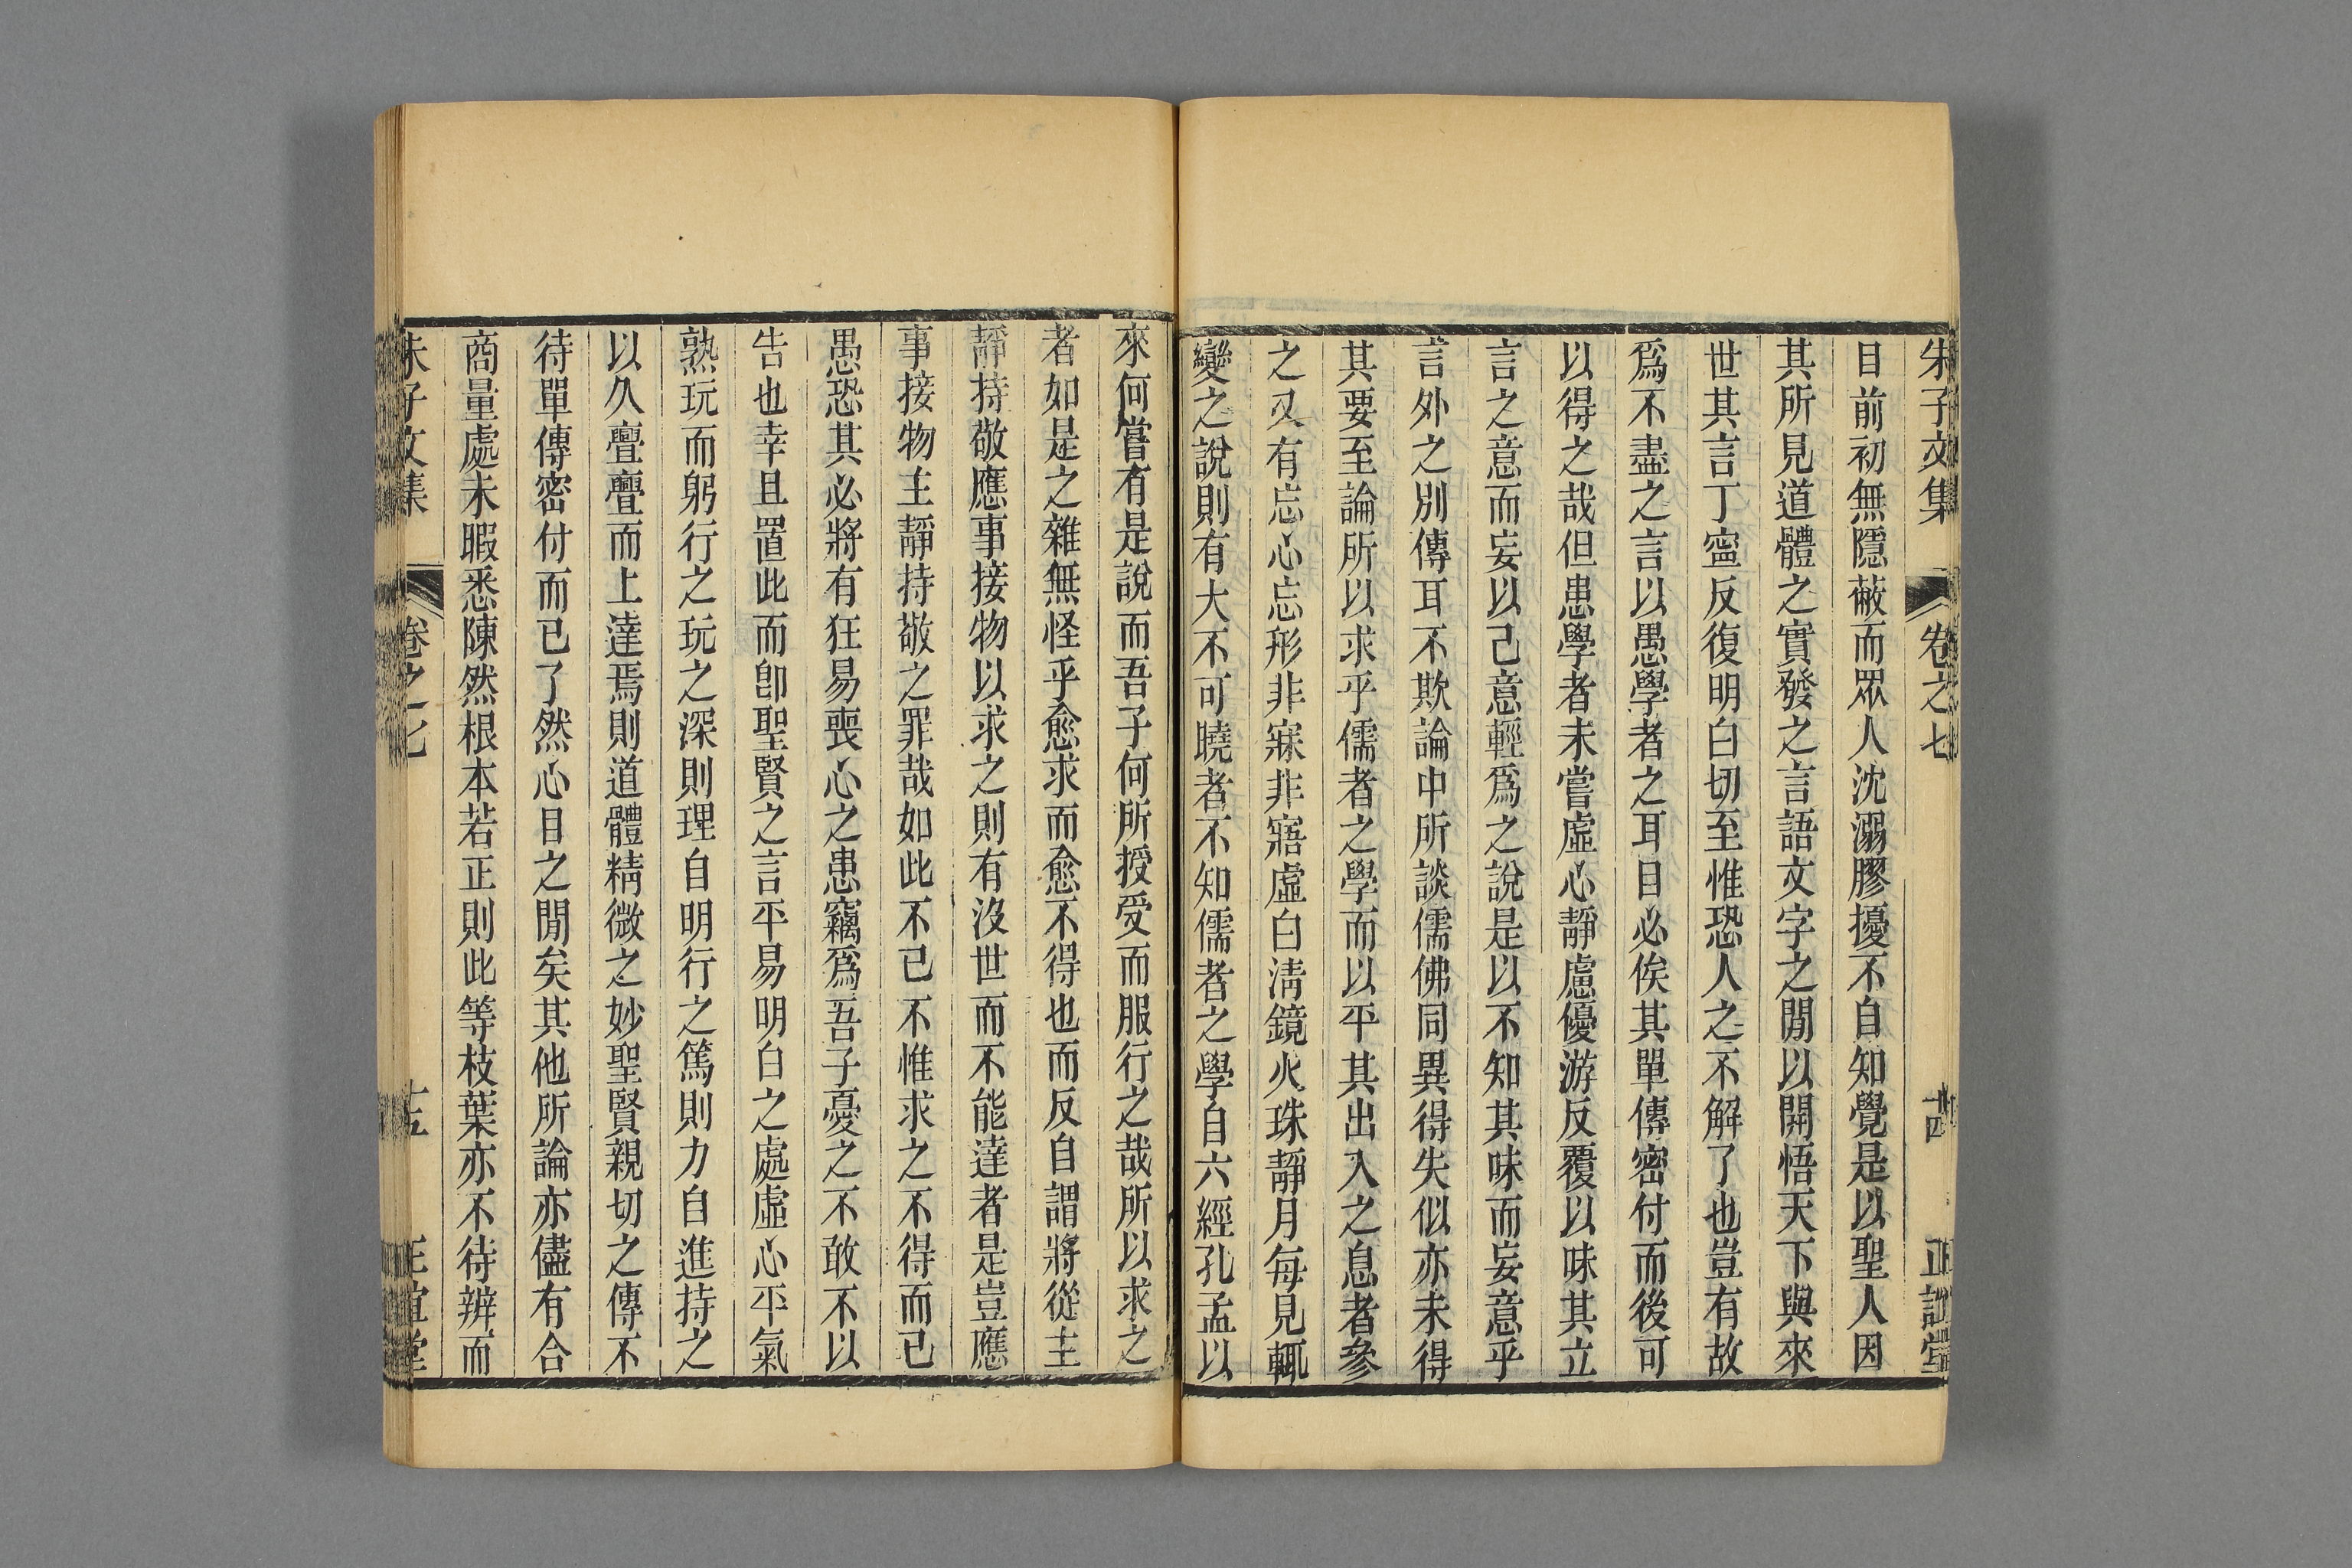 朱子文集 卷之七 十四 正誼堂
目前初無隱蔽而眾人沈溺膠擾不自知覺是以聖人因
其所見道體之實發之言語文字之閒以開悟天下與來
世其言丁寧反復明白切至惟恐人之不解了也豈有故
爲不盡之言以愚學者之耳目必俟其單傳密付而後可
以得之哉但患學者未嘗虛心靜慮優游反覆以味其立
言之意而妄以己意輕爲之說是以不知其味而妄意乎
言外之別傳耳不欺論中所談儒佛同異得失似亦未得
其要至論所以求乎儒者之學而以平其出入之息者參
之又有忘心忘形非寐非寤虛白淸鏡火珠靜月每見輒
變之說則有大不可曉者不知儒者之學自六經孔孟以
來何嘗有是說而吾子何所授受而服行之哉所以求之
者如是之雜無怪乎愈求而愈不得也而反自謂將從主
靜持敬應事接物以求之則有沒世而不能達者是豈應
事接物主靜持敬之罪哉如此不已不惟求之不得而已
愚恐其必將有狂易喪心之患竊爲吾子憂之不敢不以
告也幸且置此而卽聖賢之言平易明白之處虛心平氣
熟玩而躬行之玩之深則理自明行之篤則力自進持之
以久亹亹而上達焉則道體精微之妙聖賢親切之傳不
待單傳密付而已了然心目之閒矣其他所論亦儘有合
商量處未暇悉陳然根本若正則此等枝葉亦不待辨而
朱子文集 卷之七 十五 正誼堂